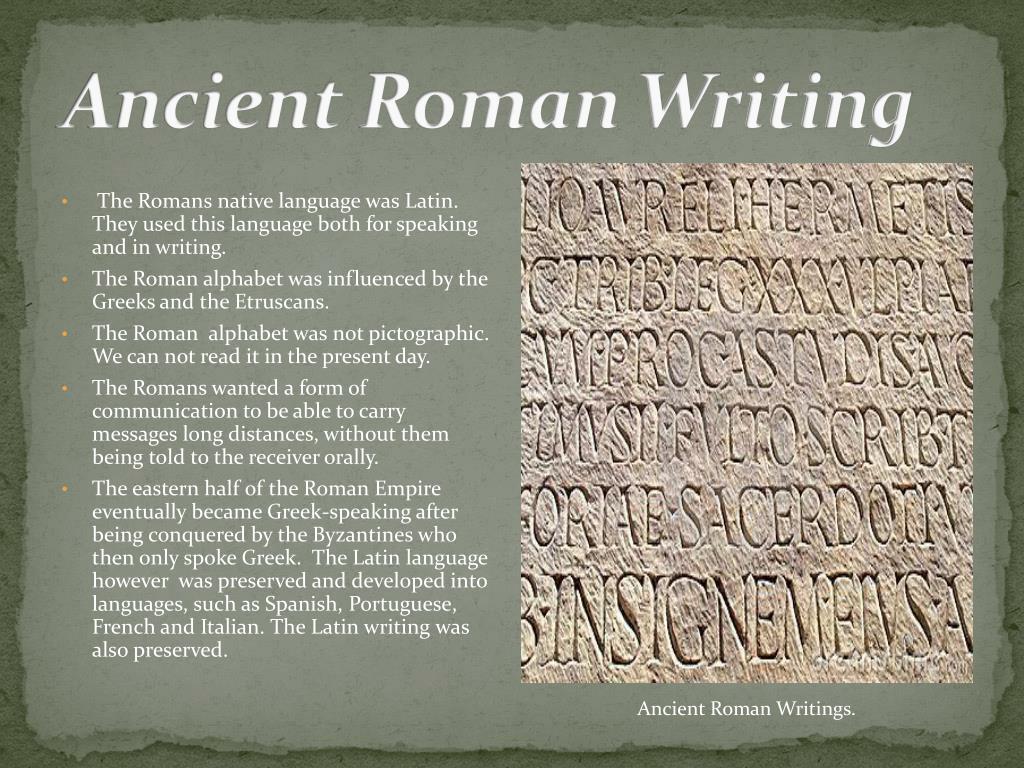 Ancient Roman Writing
The Romans native language was Latin.
They used this language both for speaking
and in writing.
The Roman alphabet was influenced by the
Greeks and the Etruscans.
The Roman alphabet was not pictographic.
We can not read it in the present day.
The Romans wanted a form of
communication to be able to carry
messages long distances, without them
being told to the receiver orally.
The eastern half of the Roman Empire
eventually became Greek-speaking after
being conquered by the Byzantines who
then only spoke Greek. The Latin language
however was preserved and developed into
languages, such as Spanish, Portuguese,
French and Italian. The Latin writing was
also preserved.
RELI·HERMETIS
TRIB·LEG·XXX·VLPIAE
PROCAST
SCRIBT
SACERDOTIV
B·INSIGNEM·EN
Ancient Roman Writings.